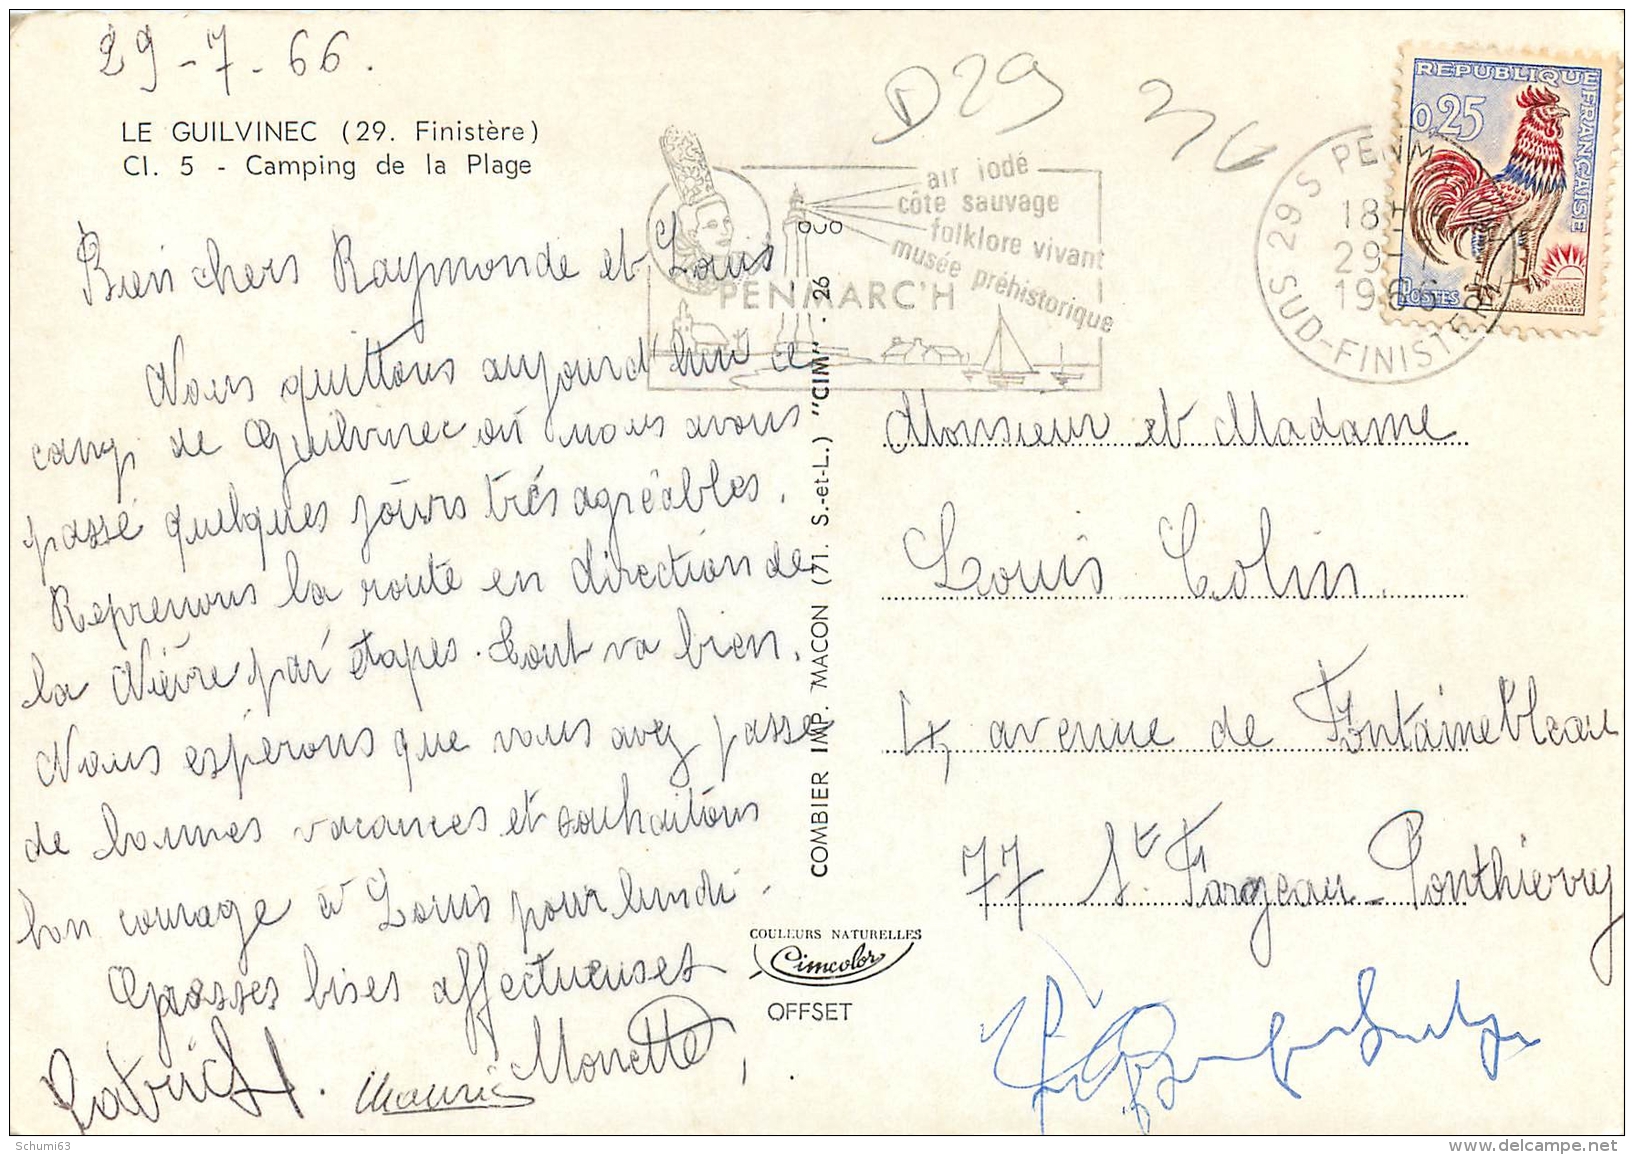 29-7-66.
LE GUILVINEC (29. Finistère)
Cl. 5 - Camping de la Plage
Bien chers Raymonde et Louis
Nous quittons aujourd'hui ce
camp de Guilvinec où nous avons
passé quelques jours très agréables.
Reprenons la route en direction de
la Nièvre par étapes. Tout va bien.
Nous espérons que vous avez passé
de bonnes vacances et souhaitons
bon courage à Louis pour lundi.
Grosses bises affectueuses
Patrick.
Maurice
Monette,
COMBIER IMP. MACON (71. S.-et-L.) "CIM" . 26
COULEURS NATURELLES
Cimcolor
OFFSET
D29
air iodé
côte sauvage
folklore vivant
musée préhistorique
PENMARC'H
29 S PENM
18H
29-7
1966
SUD-FINISTERE
REPUBLIQUE FRANÇAISE
0,25
POSTES
DECARIS
Monsieur et Madame
Louis Colin.
4, avenue de Fontainebleau
77 St. Fargeau-Ponthierry
Schumi63
www.delcampe.net